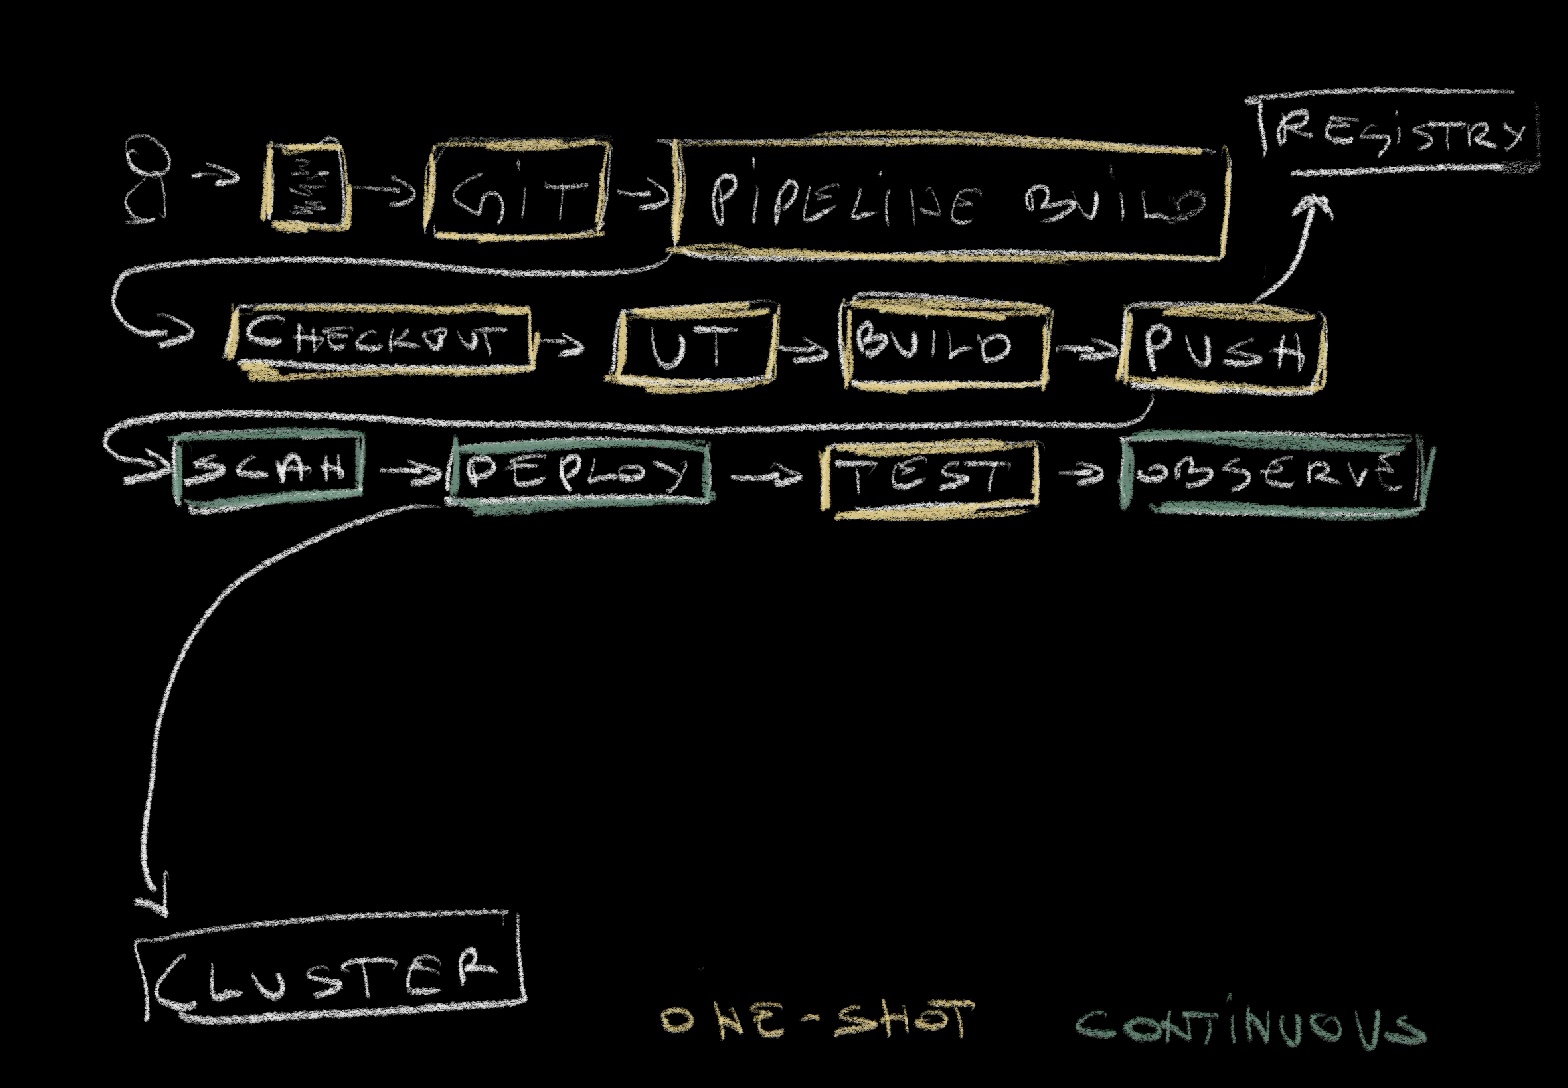 REGISTRY
GIT
PIPELINE BUILD
CHECKOUT
UT
BUILD
PUSH
SCAN
DEPLOY
TEST
OBSERVE
CLUSTER
ONE-SHOT
CONTINUOUS